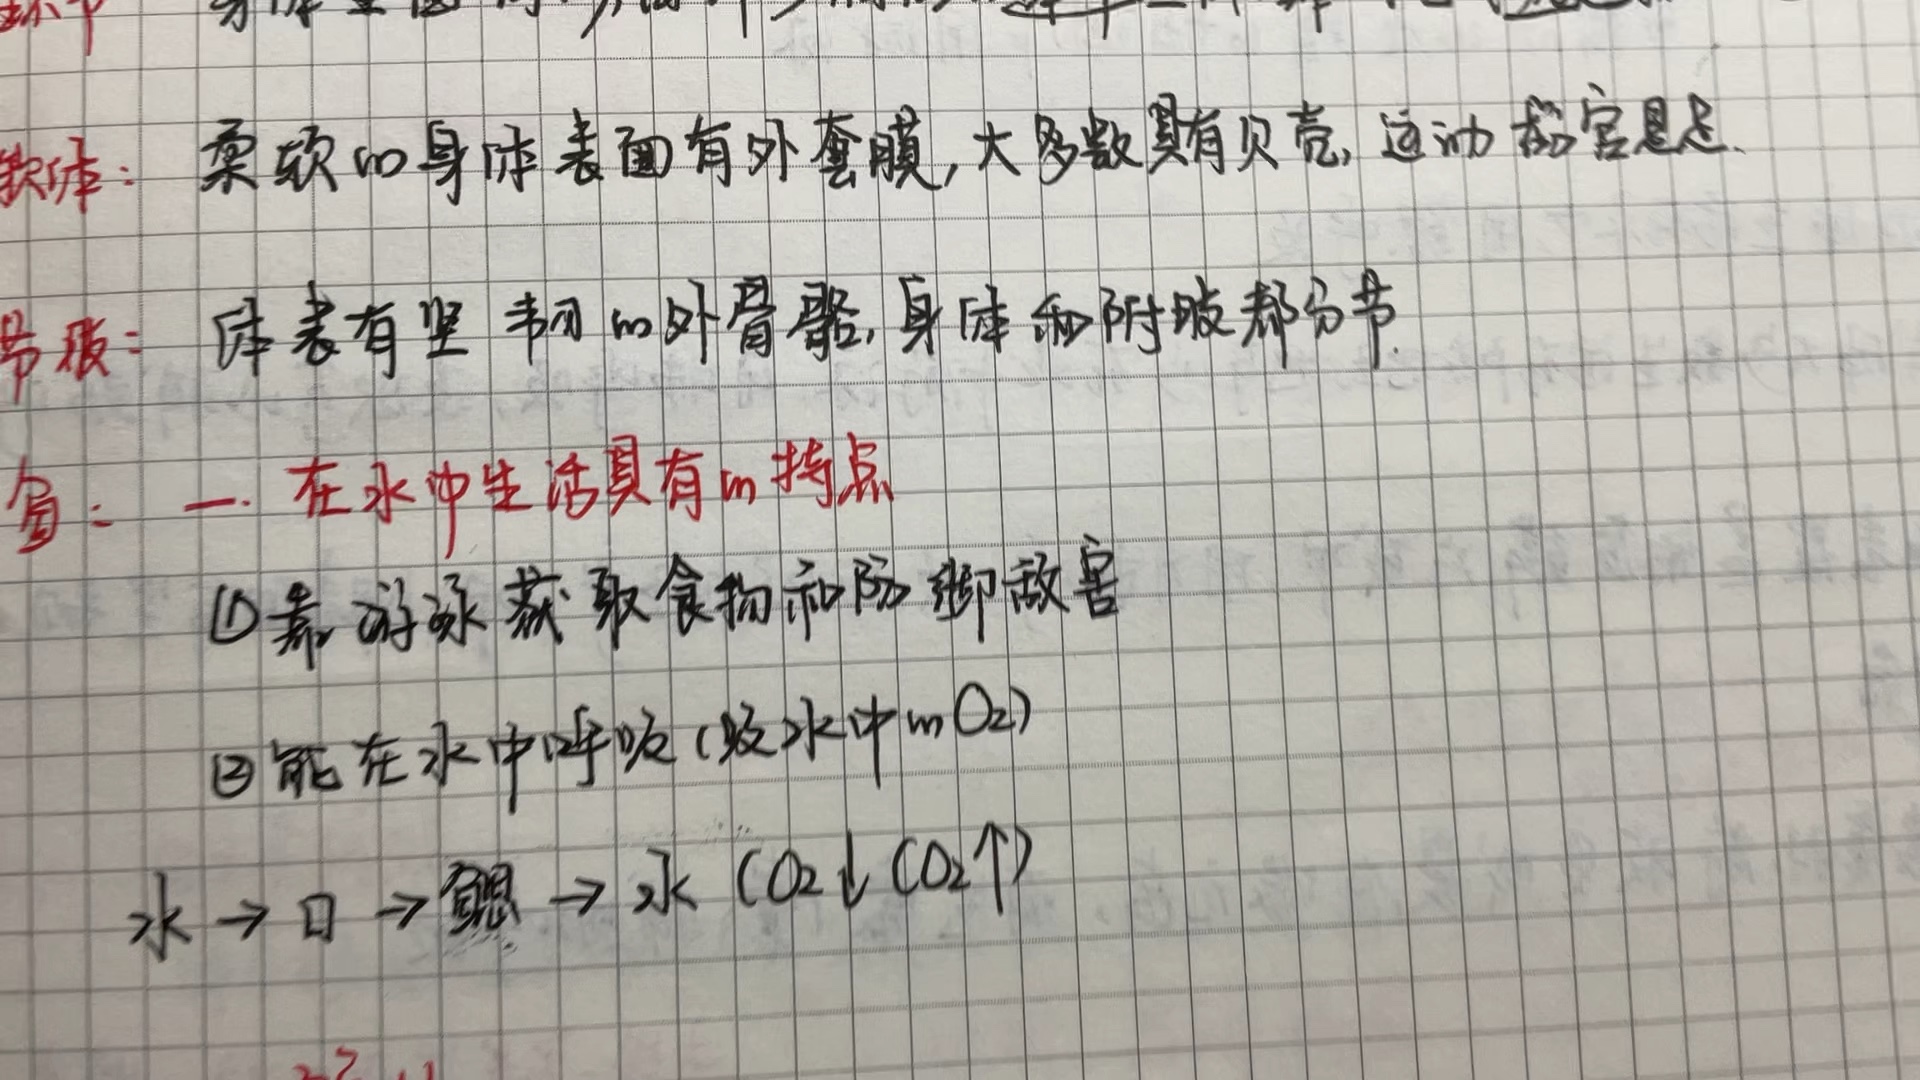 软体：柔软的身体表面有外套膜，大多数具有贝壳，运动器官是足.
节肢：体表有坚韧的外骨骼，身体和附肢都分节.
鱼：一.在水中生活具有的特点
①靠游泳获取食物和防御敌害
②能在水中呼吸（吸水中的O₂）
水→口→鳃→水（O₂↓ CO₂↑）